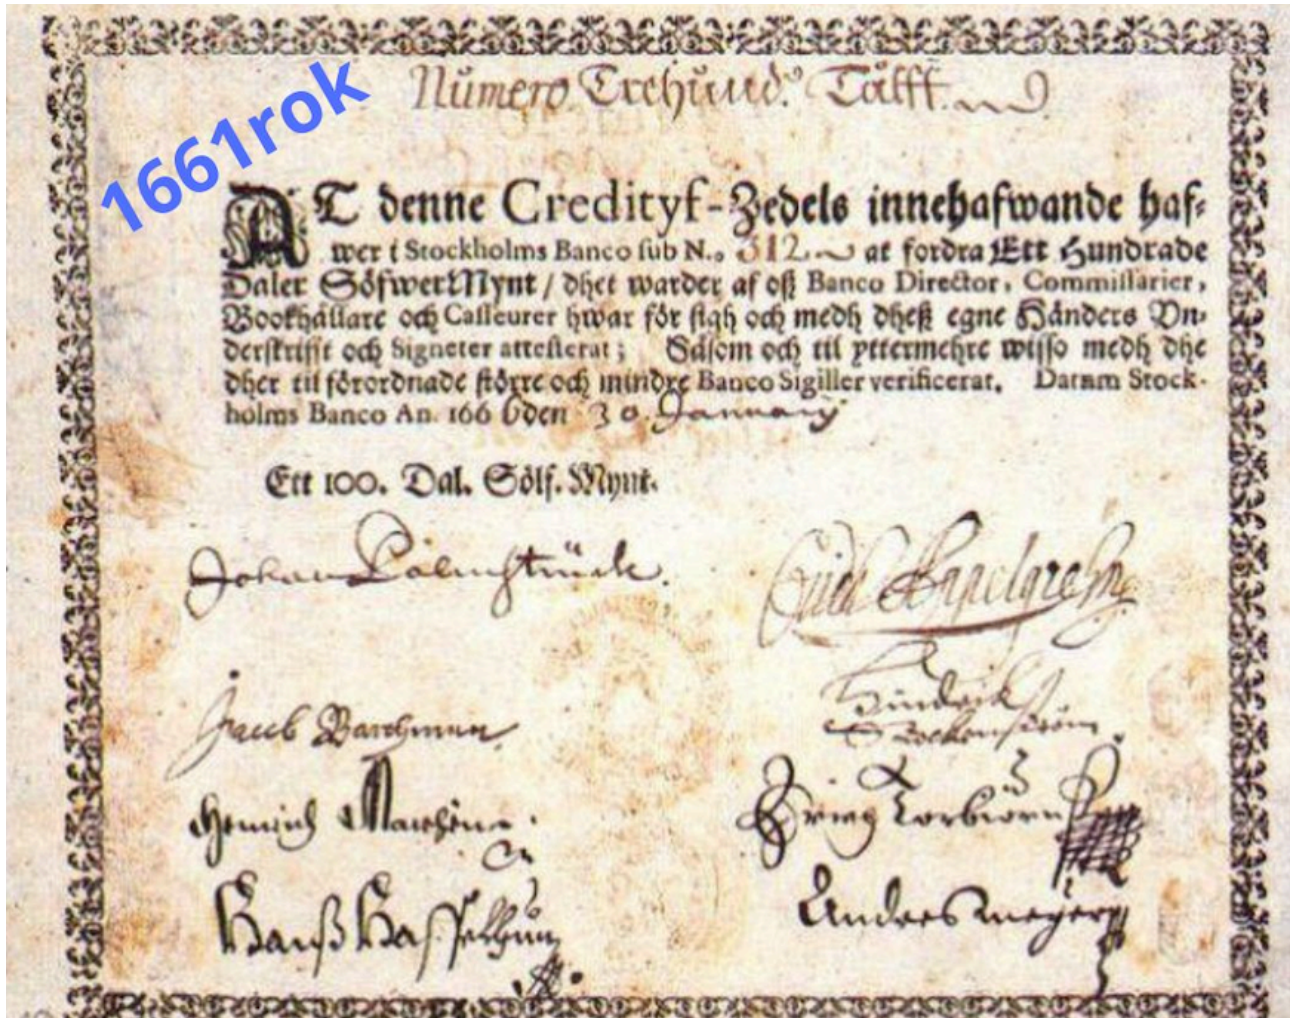 1661rok
Numero Trehund. Tålff
AT denne Credityf-Zedels innehafwande haf-
wer i Stockholms Banco sub N.o 312 at fordra Ett Hundrade
Daler SölfwerMynt / dhet warder af oß Banco Director, Commissarier,
Bookhållare och Casseurer hwar för sigh och medh dheß egne Händers Vn-
derskrifft och Signeter attesterat; Såsom och til yttermehre wisso medh dhe
dher til förordnade större och mindre Banco Sigiller verificerat. Datum Stock-
holms Banco An. 1666 den 30. January
Ett 100. Dal. Sölf. Mynt.
Johan Palmstruck.
Jacob Barchman
Hindrik
Heinrich
Torbiörn
Hanß
Anders Meyer